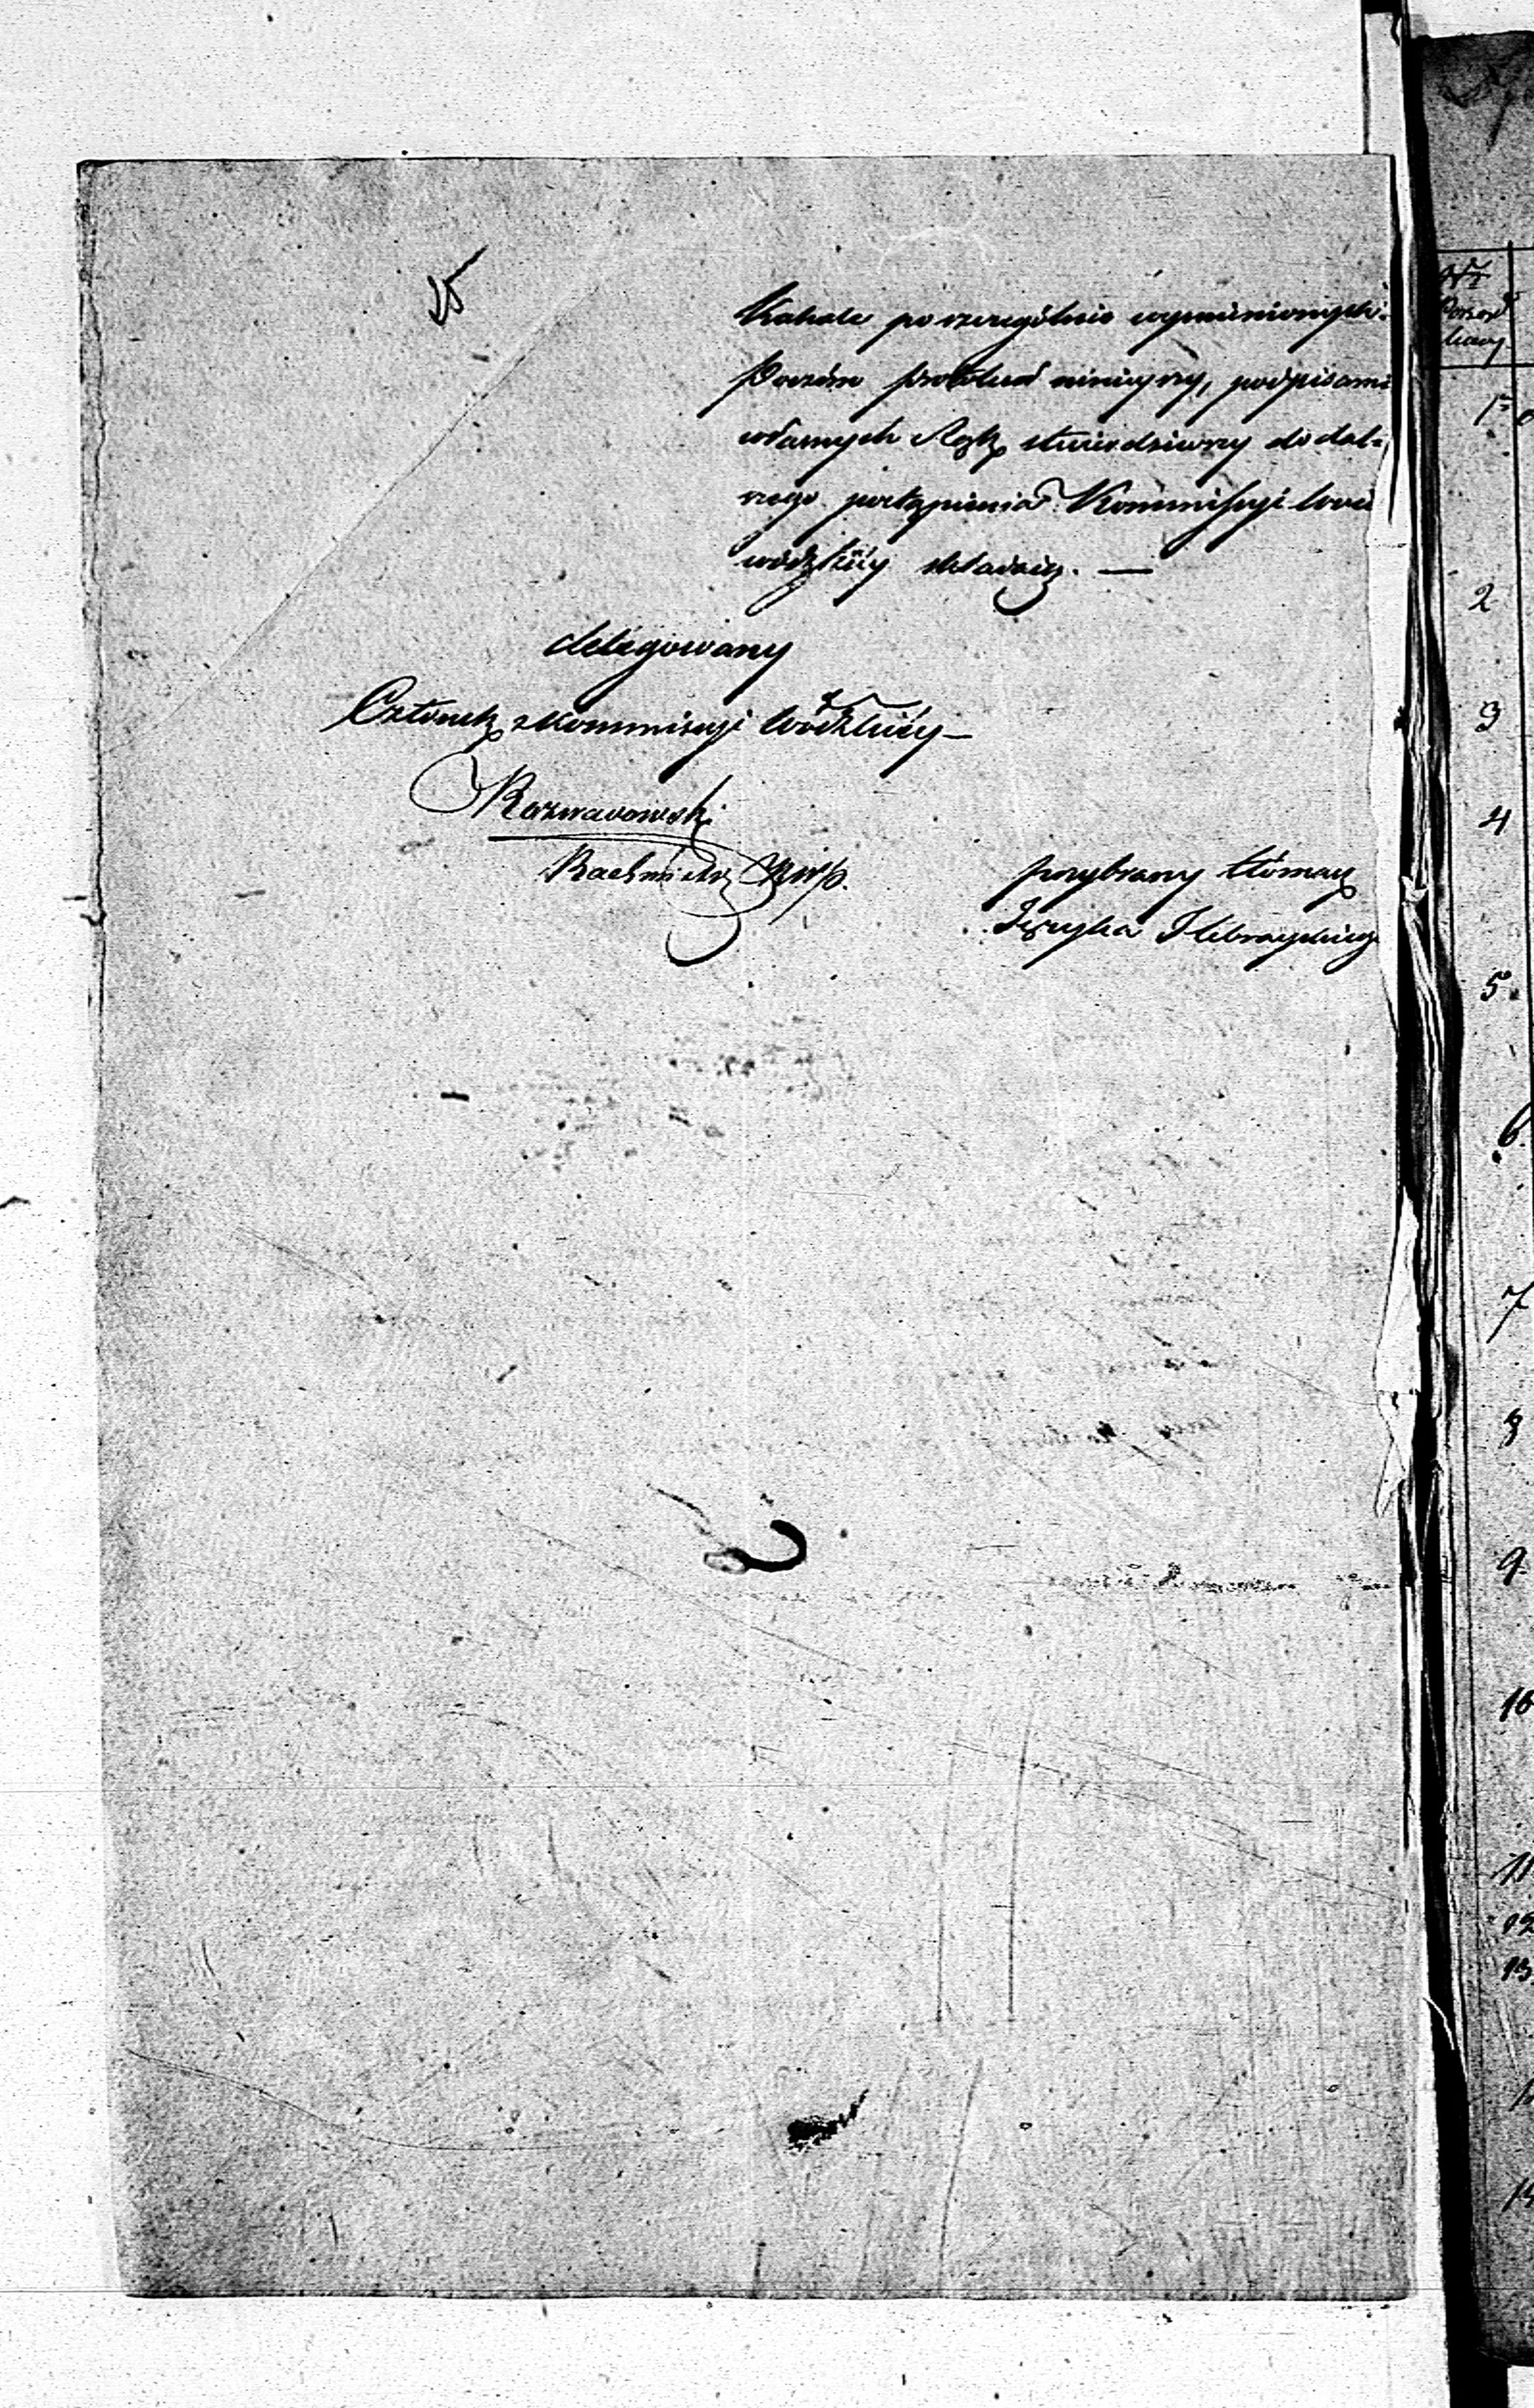 25
Kahale poszczególnie wymienionych.
Poczém protokuł niniejszy, podpisami
własnych Rąk stwierdziwszy do dal-
szego postąpienia Kommissyi Woie
wódzkiéy składaią. —
delegowany
Członek z Kommissyi Wdzkiéy —
Rozwadowski
Rachmistrz KWP.
przybrany tłómacz
Języka Hebrayskiego
Nr
1
2
3
4
5.
6.
7
8
9.
10
11
12
13